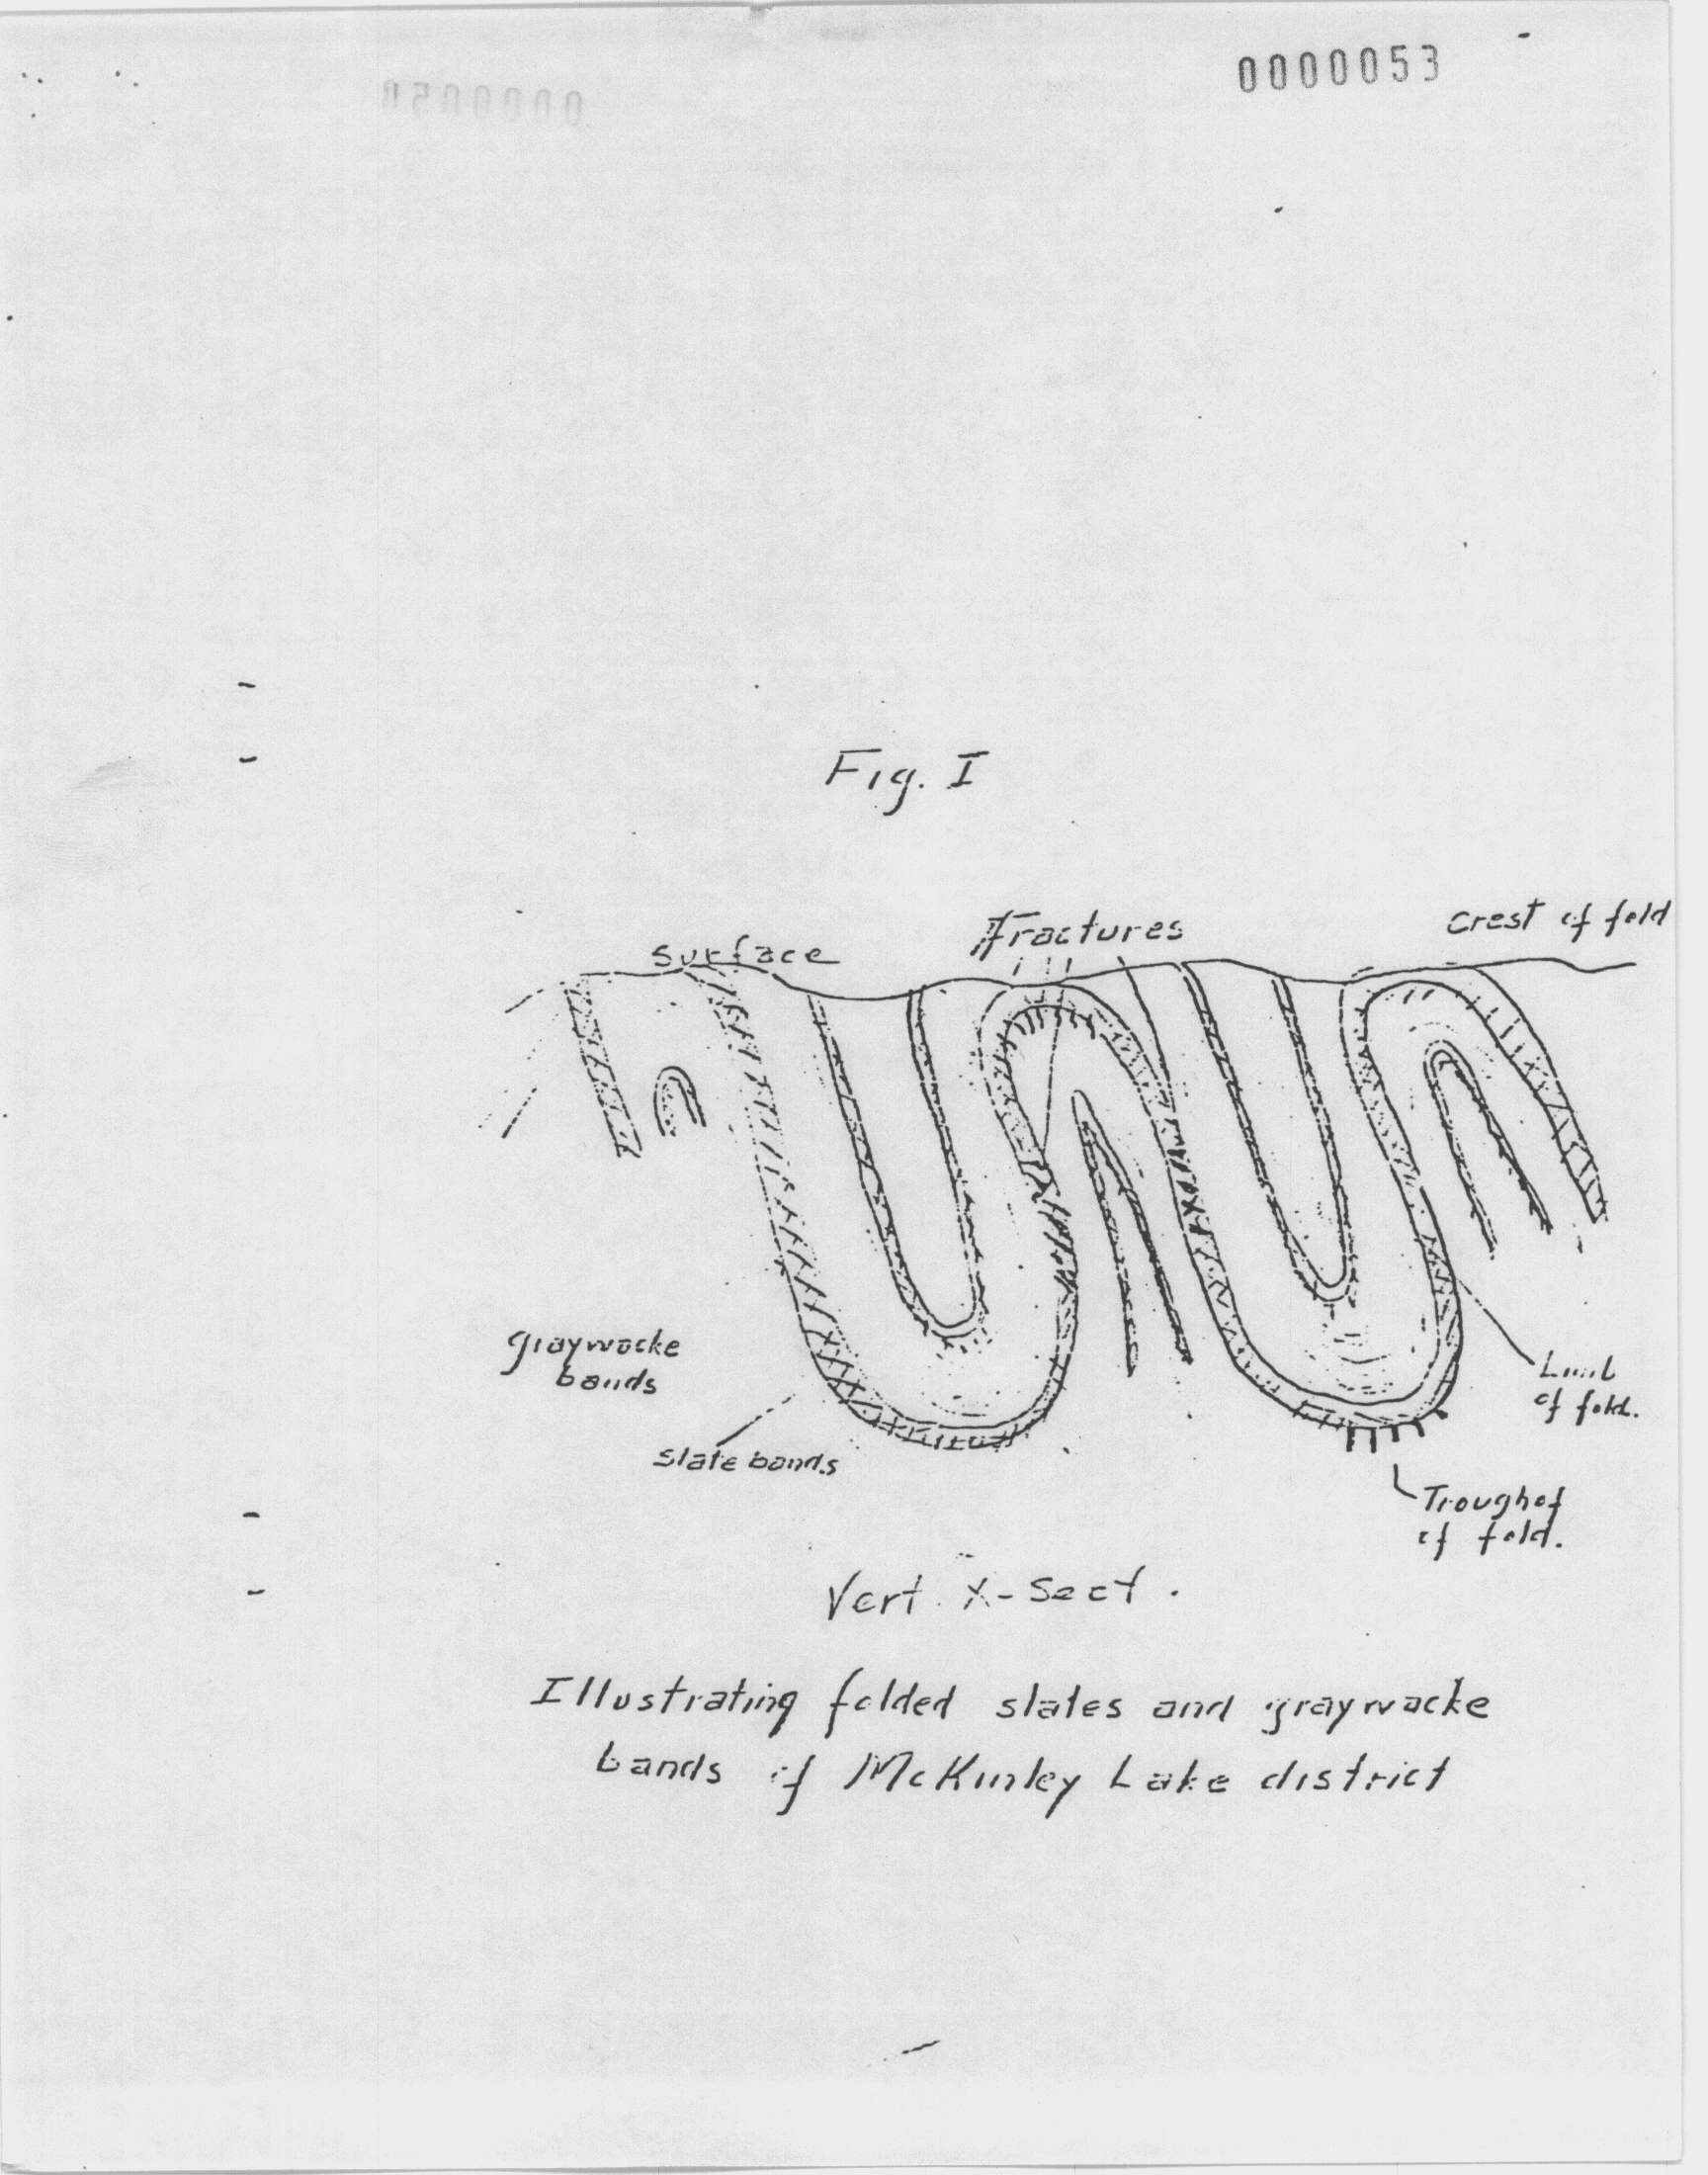 0000053
Fig. I
Surface
Fractures
Crest of fold
graywacke
bands
slate bands
Limb
of fold.
Troughof
of fold.
Vert. X-Sect.
Illustrating folded slates and graywacke
bands of McKinley Lake district